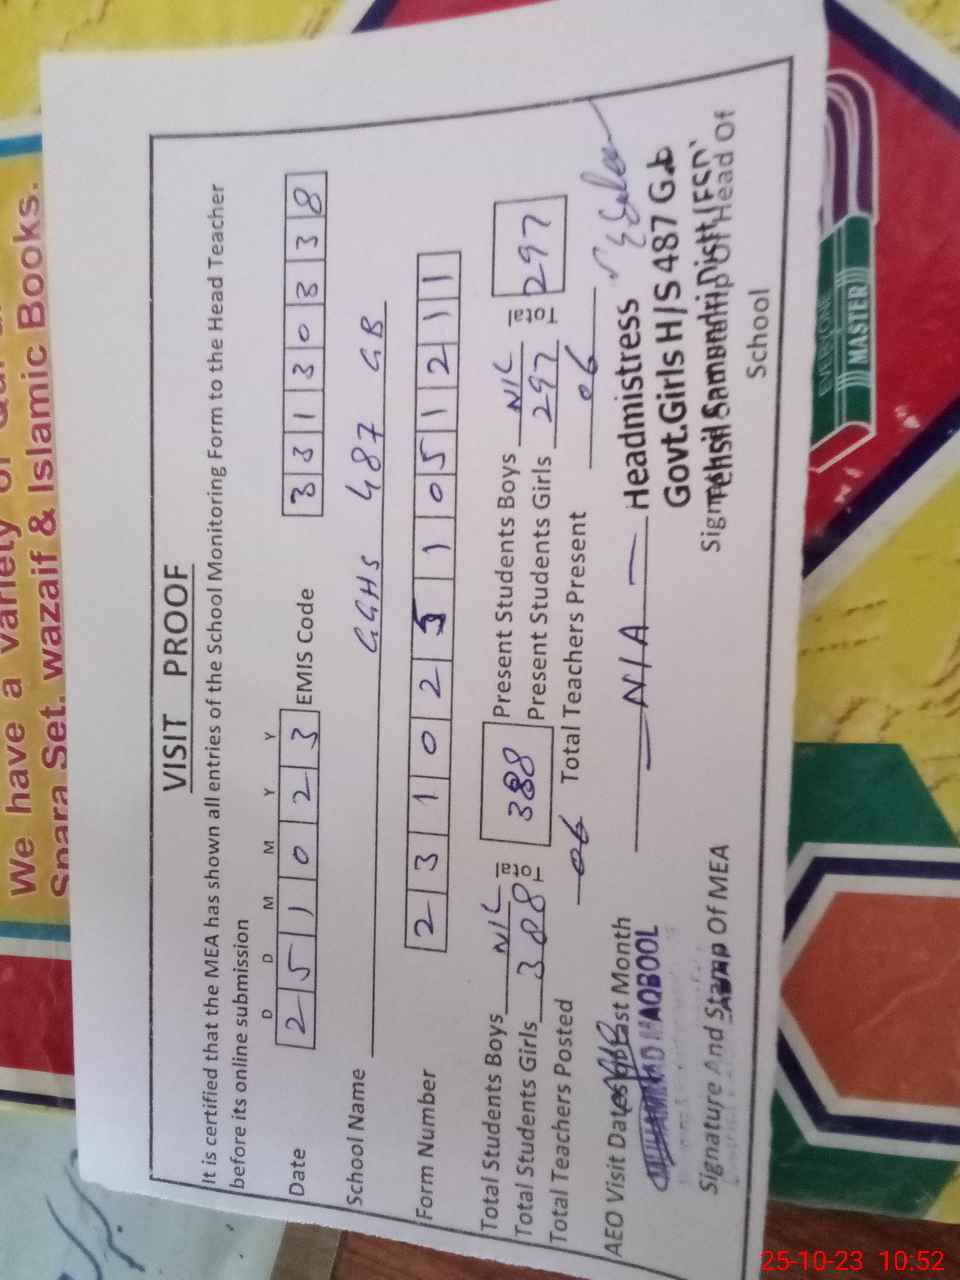 We have a variety of
Spara Set, wazaif & Islamic Books.
VISIT PROOF
It is certified that the MEA has shown all entries of the School Monitoring Form to the Head Teacher
before its online submission
D D M M Y Y
Date 2 5 1 0 2 3 EMIS Code 3 3 1 3 0 3 3 8
School Name GGHS 487 GB
Form Number 2 3 1 0 2 5 1 0 5 1 2 1 1
Total Students Boys NIL Total 388 Present Students Boys NIL Total 297
Total Students Girls 388 Present Students Girls 297
Total Teachers Posted 06 Total Teachers Present 06
AEO Visit Dates of Last Month N/A
MUHAMMAD MAQBOOL
Headmistress
Govt.Girls H/S 487 G.b
Tehsil Samundri Distt (FSD)
Signature And Stamp Of MEA
Head Of
School
EVERYONE
MASTER
25-10-23 10:52